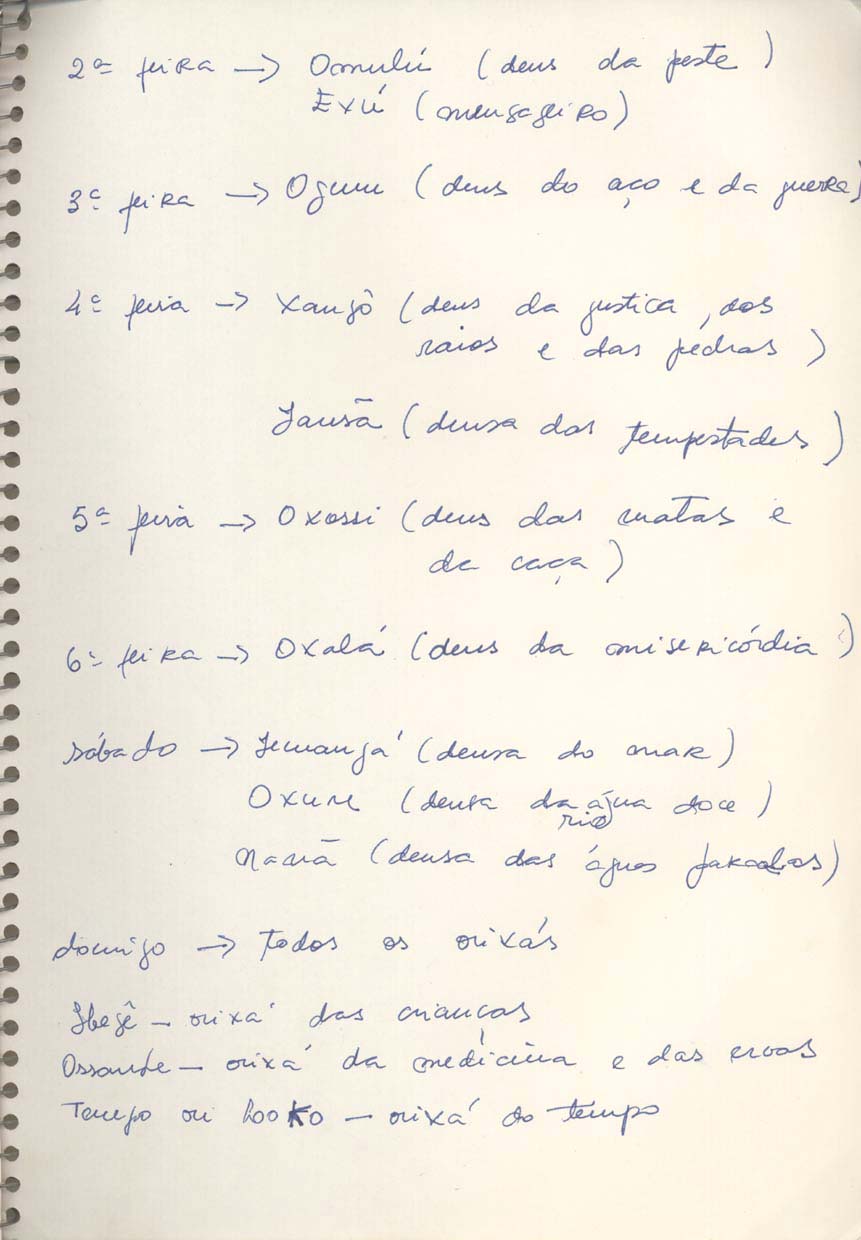 2ª feira → Omulú (deus da peste)
Exú (mensageiro)
3ª feira → Ogum (deus do aço e da guerra)
4ª feira → Xangô (deus da justiça, dos
raios e das pedras)
Iansã (deusa das tempestades)
5ª feira → Oxossi (deus das matas e
da caça)
6ª feira → Oxalá (deus da misericórdia)
sábado → Iemanjá (deusa do mar)
Oxum (deusa da água doce)
rio
Nanã (deusa das águas paradas)
domigo → todos os orixás
Ibejê – orixá das crianças
Ossanhe – orixá da medicina e das ervas
Tempo ou looko – orixá do tempo